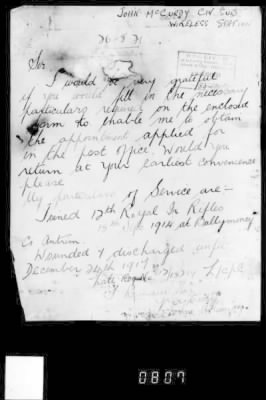 JOHN McCURDY C/W. Cus
WIRELESS STATION
26-8-31
Sir
I would be very grateful
if you would fill in the necessary
particulars required on the enclosed
form to enable me to obtain
the appointment applied for
in the post office. Would you
return at your earliest convenience
please
My particulars of Service are:-
Joined 12th Royal Ir Rifles
15th Sept 1914 at Ballymoney
Co Antrim.
Wounded & discharged unfit
December 24th 1917
Late L/Cpl
0807